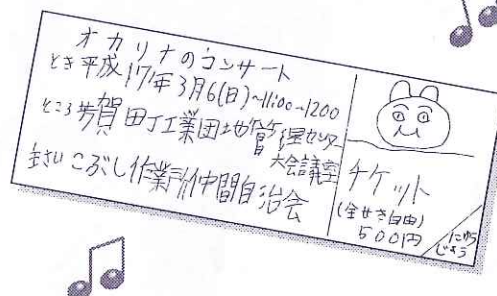 オカリナのコンサート
とき 平成17年3月6(日)~11:00~1200
ところ 芳賀町工業団地管理センター
大会議室
主さい こぶし作業所仲間自治会
チケット
(全せき自由)
500円
にゅう
じょう